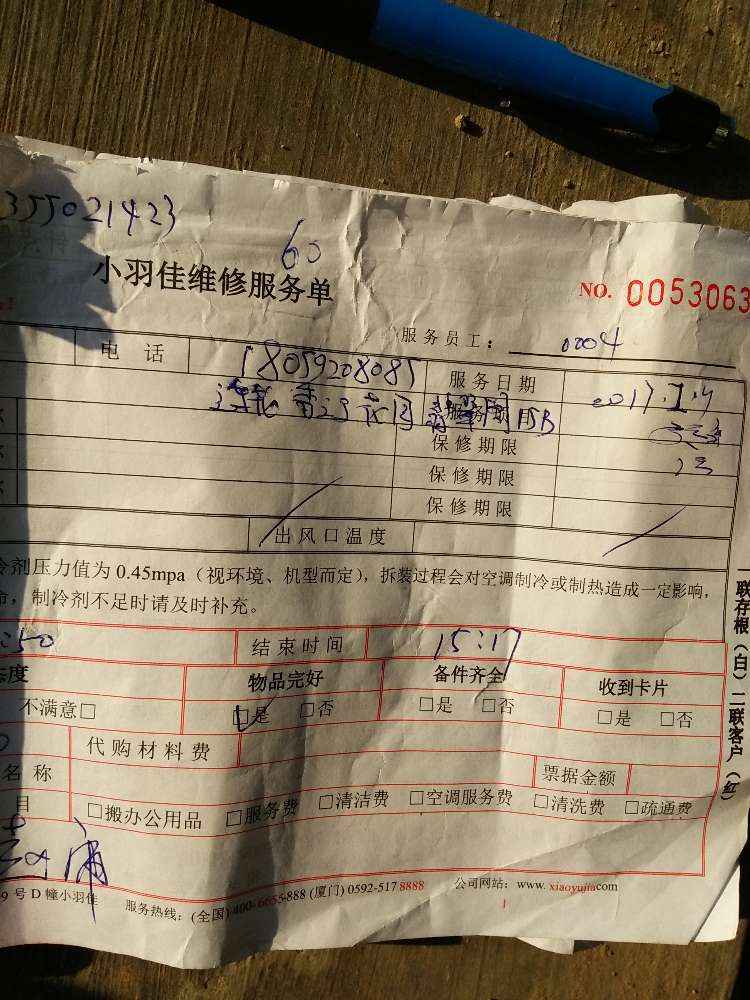 355021423
60
小羽佳维修服务单
NO. 0053063
服务员工： 0004
电 话 18059208085 服务日期 2017.1.4
保修期限
保修期限
保修期限
出风口温度
冷剂压力值为 0.45mpa（视环境、机型而定），拆装过程会对空调制冷或制热造成一定影响，
命，制冷剂不足时请及时补充。
:50 结束时间 15:17
态度 物品完好 备件齐全 收到卡片
不满意□ □是 □否 □是 □否 □是 □否
代购材料费
名 称 票据金额
目 □搬办公用品 □服务费 □清洁费 □空调服务费 □清洗费 □疏通费
9 号 D 幢小羽佳 服务热线：(全国) 400-6655-888 (厦门) 0592-517 8888 公司网站：www.xiaoyujia.com
1
一联存根（白）二联客户（红）